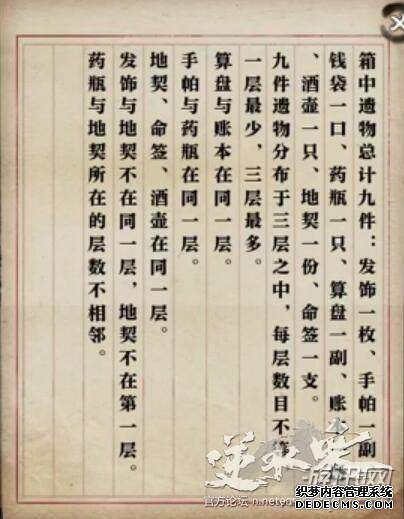 箱中遗物总计九件：发饰一枚、手帕一副
钱袋一口、药瓶一只、算盘一副、账本
、酒壶一只、地契一份、命签一支。
九件遗物分布于三层之中，每层数目不等
一层最少，三层最多。
算盘与账本在同一层。
手帕与药瓶在同一层。
地契、命签、酒壶在同一层。
发饰与地契不在同一层，地契不在第一层。
药瓶与地契所在的层数不相邻。
逆水寒
官方论坛
织梦内容管理系统
DEDECMS.COM